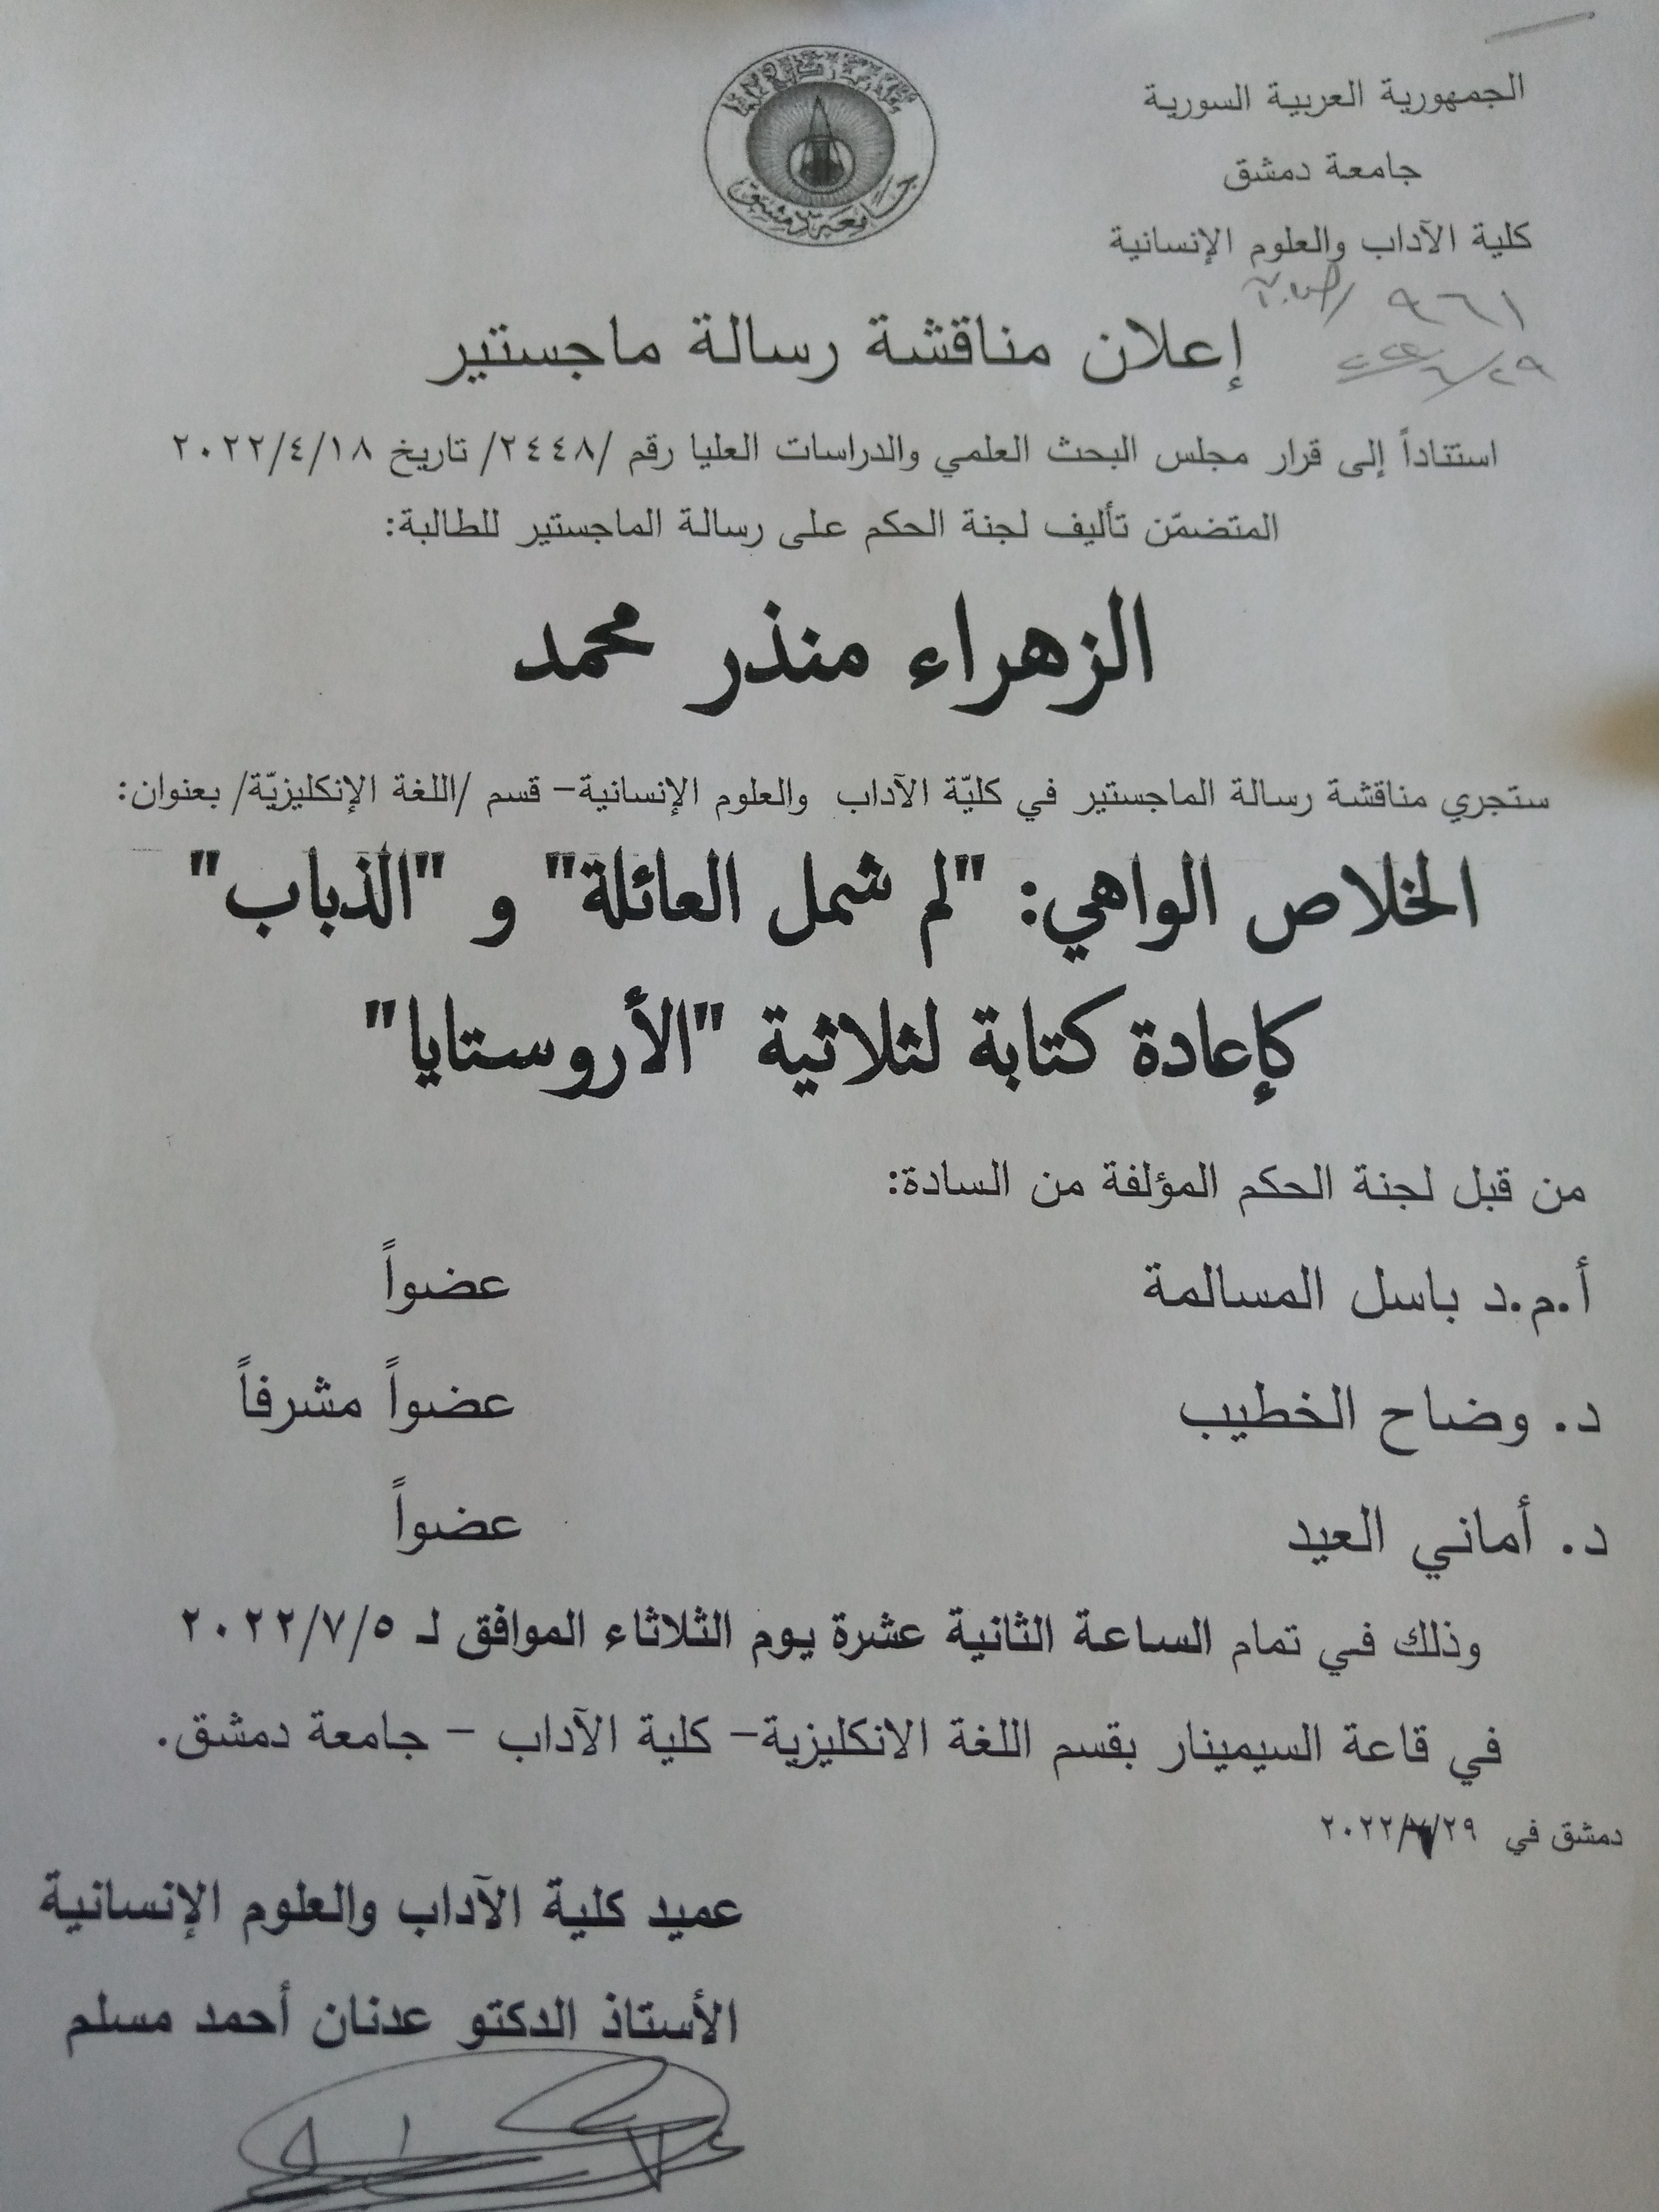 الجمهورية العربية السورية
جامعة دمشق
جامعة دمشق
كلية الآداب والعلوم الإنسانية
٩٦١
٢٩/٦/
إعلان مناقشة رسالة ماجستير
استناداً إلى قرار مجلس البحث العلمي والدراسات العليا رقم /٢٤٤٨/ تاريخ ٢٠٢٢/٤/١٨
المتضمّن تأليف لجنة الحكم على رسالة الماجستير للطالبة:
الزهراء منذر محمد
ستجري مناقشة رسالة الماجستير في كليّة الآداب والعلوم الإنسانية- قسم /اللغة الإنكليزيّة/ بعنوان:
الخلاص الواهي: "لم شمل العائلة" و "الذباب"
كإعادة كتابة لثلاثية "الأروستايا"
من قبل لجنة الحكم المؤلفة من السادة:
أ.م.د باسل المسالمة عضواً
د. وضاح الخطيب عضواً مشرفاً
د. أماني العيد عضواً
وذلك في تمام الساعة الثانية عشرة يوم الثلاثاء الموافق لـ ٢٠٢٢/٧/٥
في قاعة السيمينار بقسم اللغة الانكليزية- كلية الآداب - جامعة دمشق.
دمشق في
عميد كلية الآداب والعلوم الإنسانية
الأستاذ الدكتو عدنان أحمد مسلم